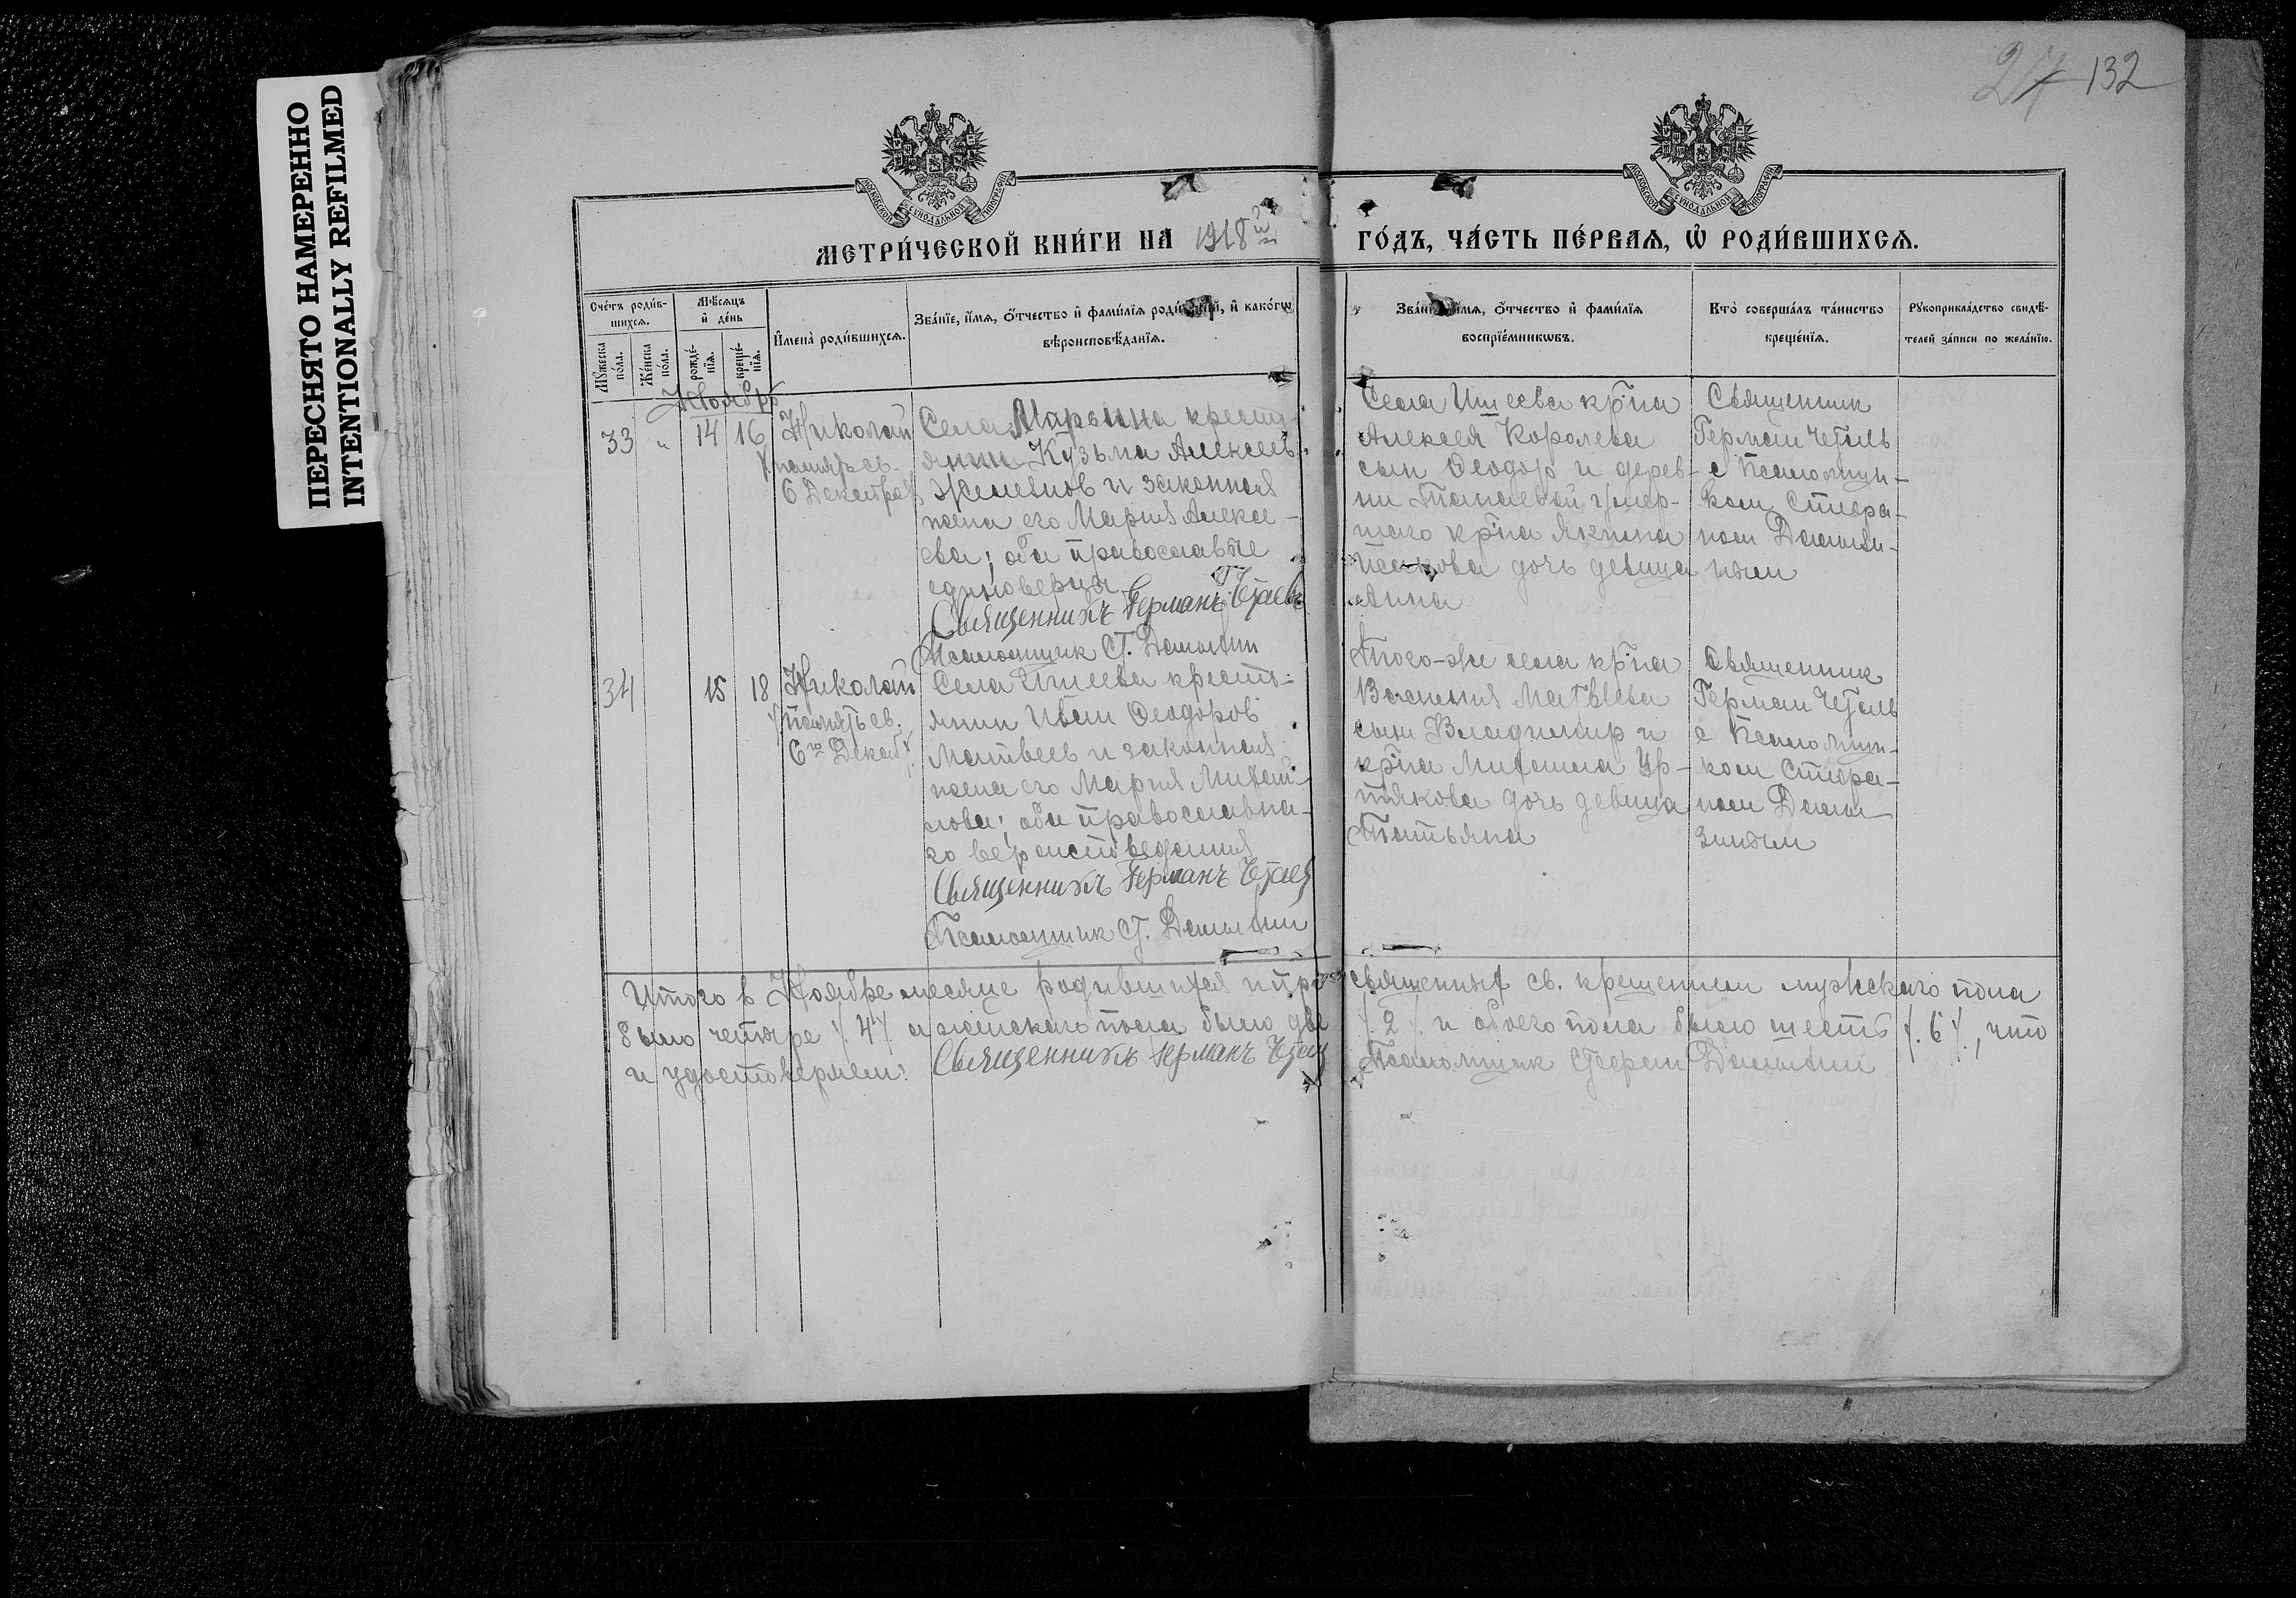 ПЕРЕСНЯТО НАМЕРЕННО
INTENTIONALLY REFILMED
27 132
МОСКОВСКОЙ СУНОДАЛЬНОЙ ТИПОГРАФІИ
МОСКОВСКОЙ СУНОДАЛЬНОЙ ТИПОГРАФІИ
МЕТРИ́ЧЕСКОЙ КНИ́ГИ НА 1918 й ГО́ДЪ, ЧА́СТЬ ПЕ́РВАѦ, Ѡ҆ РОДИ́ВШИХСѦ.
Сче́тъ роди́в-
шихсѧ.
Мꙋ́жеска по́ла.
Же́нска по́ла.
Мѣ́сѧцъ и҆ де́нь
рожде́-
нїѧ.
креще́-
нїѧ.
И҆мена̀ роди́вшихсѧ.
Зва́нїе, и҆́мѧ, ѻ҆́тчество и҆ фами́лїѧ роди́телей, и҆ како́гѡ
вѣроисповѣ́данїѧ.
Зва́нїе, и҆́мѧ, ѻ҆́тчество и҆ фами́лїѧ
воспрїе́мникѡвъ.
Кто̀ соверша́лъ та́инство
креще́нїѧ.
Рꙋкоприкла́дство свидѣ́-
телей за́писи по жела́нїю.
Ноябрь
33 " 14 16
Николай
память св.
6 Декабря
Села Марьина крестья
янин Кузьма Алексеев
Желетнов и законная
жена его Мария Алексе-
ева; оба православные
единоверца
Священникъ Германъ
Псаломщик С.
Села Ишеева кр҃на
Алексея Королева
сын Феодор и дерев-
ни умер-
шаго кр҃на
дочь девица
Анна
Священник
Герман
с Псаломщи-
ком Стефа-
ном
34 15 18
Николай
память св.
6го Декаб.
Села Ишеева кресть-
янин Иван Феодоров
Матвеев и законная
жена его Мария Михай-
лова; оба православна-
го вероисповедания
Священникъ Германъ
Псаломщик С.
Того-же села кр҃на
Василия Матвеева
сын Владимир и
кр҃на Михаила
дочь девица
Татьяна
Священник
Герман
с Псаломщи-
ком Стефа-
ном
Итого в Ноябре месяце родившихся и просвященных св. крещением мужскаго пола
было четыре /. 4 /. а женскаго пола было две /. 2 /. и обоего пола было шесть /. 6 /., что
и удостоверяем: Священникъ Германъ Псаломщик Стефан